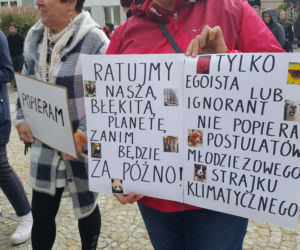 POPIERAM
RATUJMY
NASZĄ
BŁĘKITĄ
PLANETĘ,
ZANIM
BĘDZIE
ZA PÓŹNO!
TYLKO
EGOISTA LUB
IGNORANT
NIE POPIERA
POSTULATÓW
MŁODZIEŻOWEGO
STRAJKU
KLIMATYCZNEGO